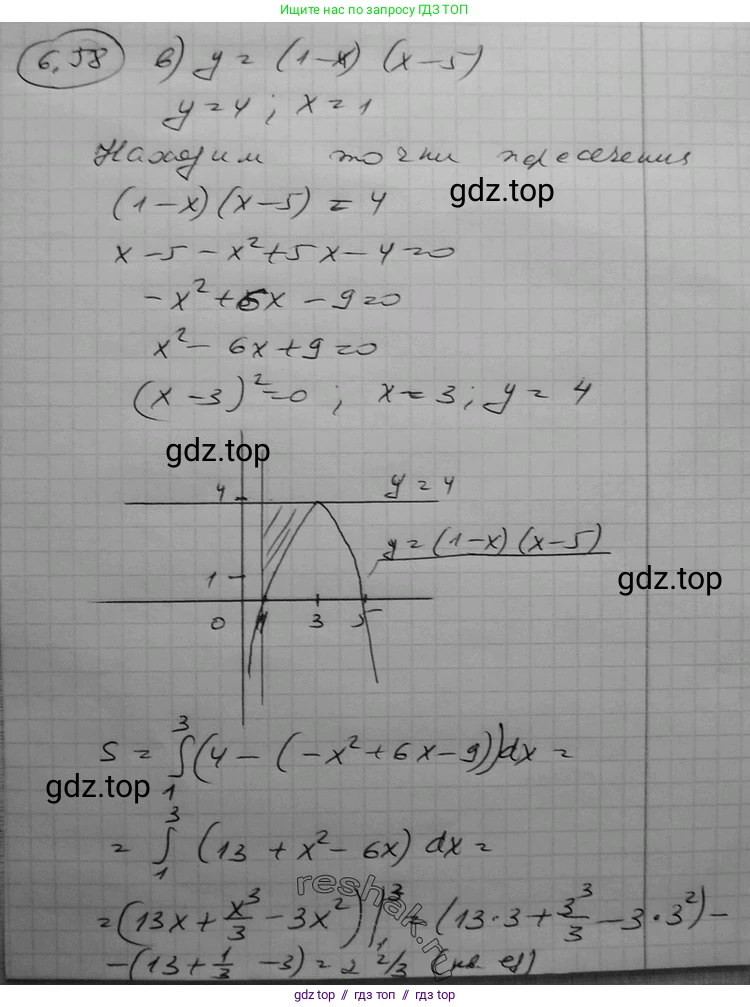 Ищите нас по запросу ГДЗ ТОП
6.58 в) y = (1-x) (x-5)
y = 4 ; x = 1
Находим точки пересечения
(1-x) (x-5) = 4
gdz.top
x - 5 - x² + 5x - 4 = 0
-x² + 6x - 9 = 0
x² - 6x + 9 = 0
(x - 3)² = 0 ; x = 3 ; y = 4
gdz.top
4 y = 4
y = (1-x) (x-5)
1
gdz.top
0 1 3 5
S = ∫₁³ (4 - (-x² + 6x - 9)) dx =
gdz.top
= ∫₁³ (13 + x² - 6x) dx =
reshak.ru
= (13x + x³/3 - 3x²) |₁³ = (13·3 + 3³/3 - 3·3²) -
- (13 + 1/3 - 3) = 2 2/3 (кв. ед)
gdz.top // гдз топ // gdz top